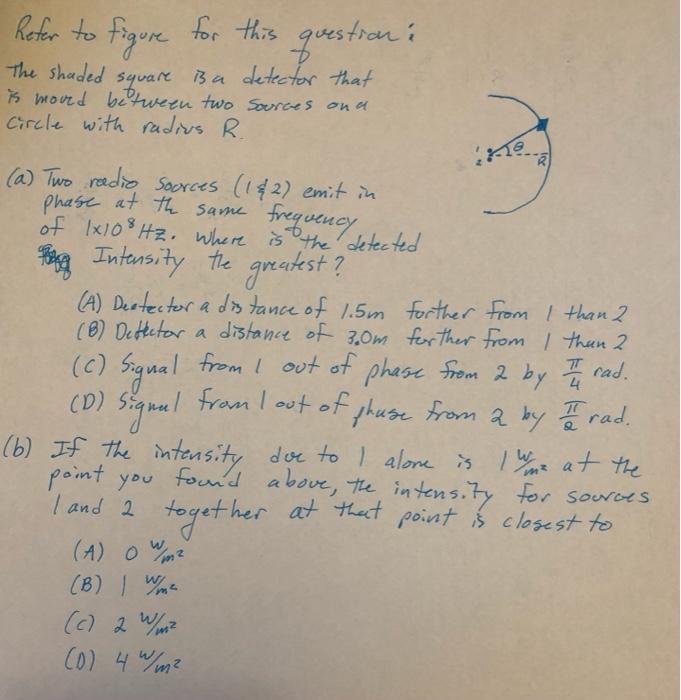 Refer to figure for this question:
The shaded square is a detector that
is moved between two sources on a
circle with radius R.
1
2
θ
R
(a) Two radio sources (1 & 2) emit in
phase at the same frequency
of 1x10⁸ Hz. Where is the detected
Intensity the greatest?
(A) Deetector a distance of 1.5m further from 1 than 2
(B) Detector a distance of 3.0m further from 1 than 2
(C) Signal from 1 out of phase from 2 by π/4 rad.
(D) Signal from 1 out of phase from 2 by π/2 rad.
(b) If the intensity due to 1 alone is 1 W/m² at the
point you found above, the intensity for sources
1 and 2 together at that point is closest to
(A) 0 W/m²
(B) 1 W/m²
(C) 2 W/m²
(D) 4 W/m²